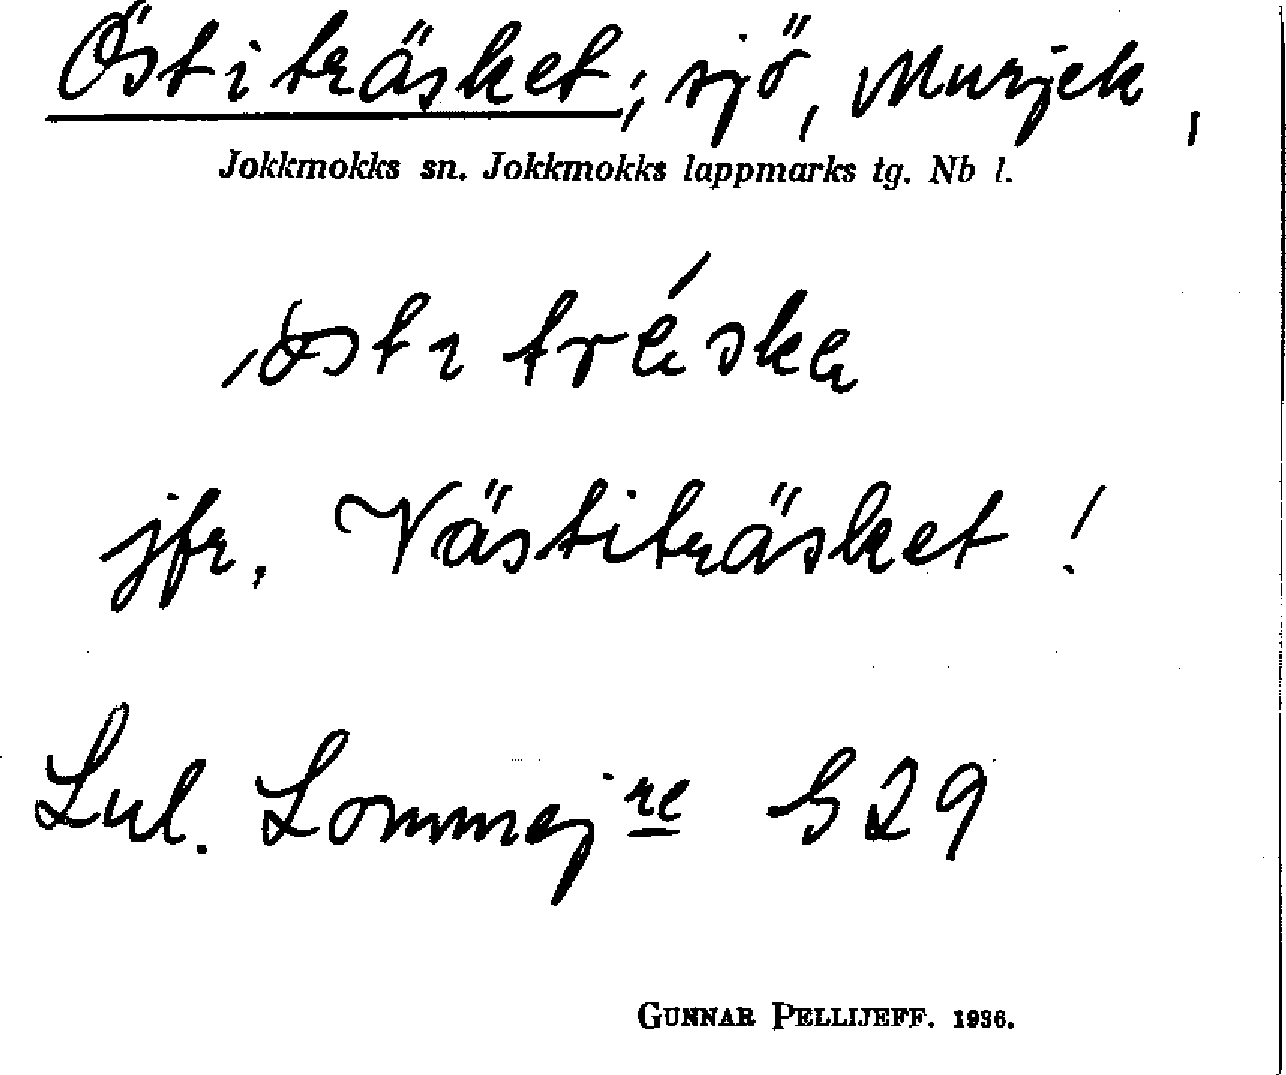 Östiträsket; sjö, Murjek,
Jokkmokks sn. Jokkmokks lappmarks tg. Nb l.
jfr. Västiträsket!
Lul. Lommej re S29
GUNNAR PELLIJEFF. 1936.